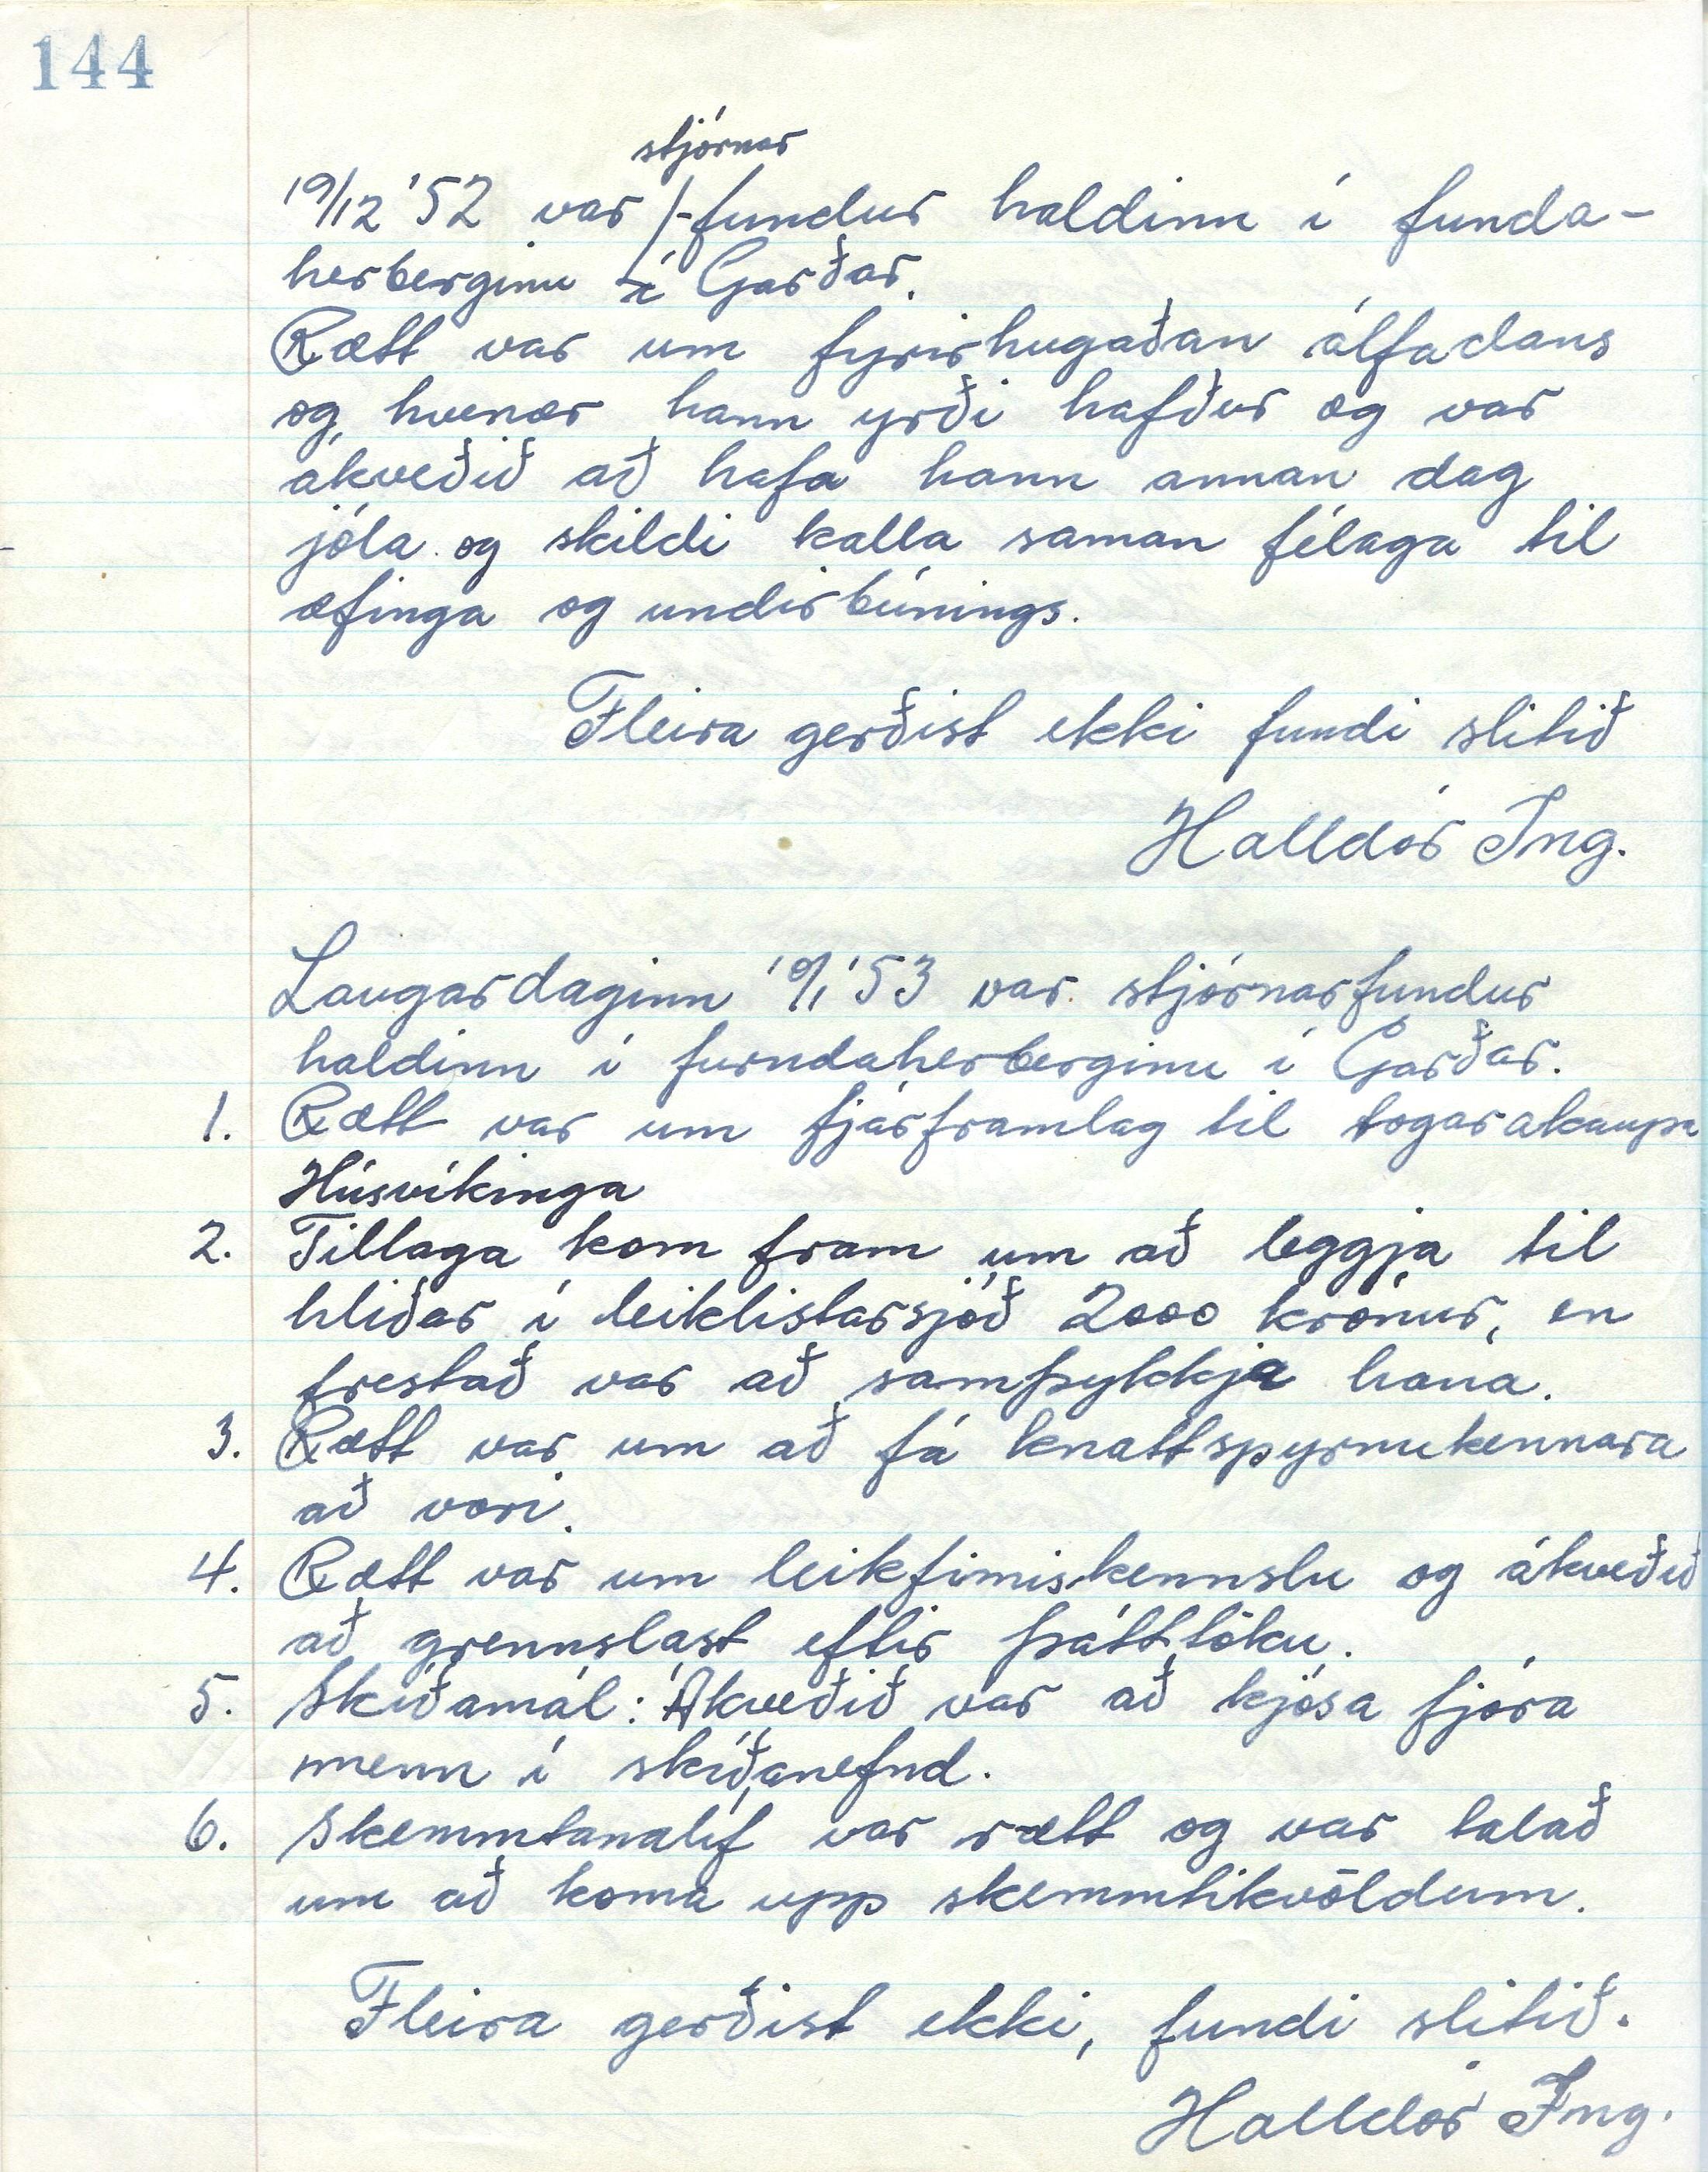 144
stjórnar
19/12 '52 var /-fundur haldinn í funda-
herberginu í Garðar.
Rætt var um fyrirhugaðan álfadans
og hvenær hann yrði hafður og var
ákveðið að hafa hann annan dag
jóla og skildi kalla saman félaga til
æfinga og undirbúnings.
Fleira gerðist ekki fundi slitið
Halldór Ing.
Laugardaginn '53 var stjórnarfundur
haldinn í furndaherberginu í Garðar.
1. Rætt var um fjárframlag til togarakaupa
Húsvíkinga
2. Tillaga kom fram um að leggja til
hliðar í leiklistarsjóð 2000 krónur, en
frestað var að samþykkja hana.
3. Rætt var um að fá knattspyrnukennara
að vori.
4. Rætt var um leikfimiskennslu og ákveðið
að grennslast eftir þátttöku.
5. Skíðamál: Ákveðið var að kjósa fjóra
menn í skíðanefnd.
6. Skemmtanalíf var rætt og var talað
um að koma upp skemmtikvöldum.
Fleira gerðist ekki, fundi slitið.
Halldór Ing.